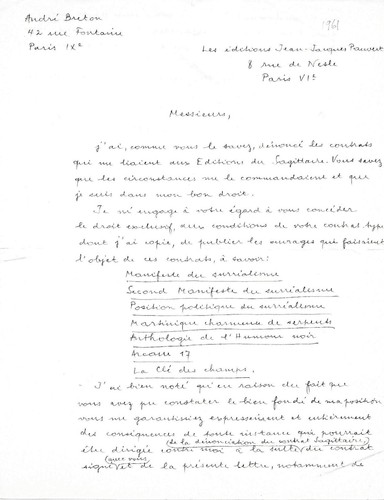 André Breton
42 rue Fontaine
Paris IXe
1961
Les éditions Jean-Jacques Pauvert
8 rue de Nesle
Paris VIe
Messieurs,
J'ai, comme vous le savez, dénoncé les contrats
qui me liaient aux Editions du Sagittaire. Vous savez
que les circonstances me le commandaient et que
je suis dans mon bon droit.
Je m'engage à votre égard à vous concéder
le droit exclusif, aux conditions de votre contrat-type
dont j'ai copie, de publier les ouvrages qui faisaient
l'objet de ces contrats, à savoir :
Manifeste du surréalisme
Second Manifeste du surréalisme
Position politique du surréalisme
Martinique charmeuse de serpents
Anthologie de l'Humour noir
Arcane 17
La Clé des champs.
J'ai bien noté qu'en raison du fait que
vous avez pu constater le bien fondé de ma position
vous me garantissez expressément et entièrement
des conséquences de toute instance qui pourrait
être dirigée contre moi à la suite (de la dénonciation du contrat Sagittaire) du contrat
signé (avec vous) et de la présente lettre, notamment de